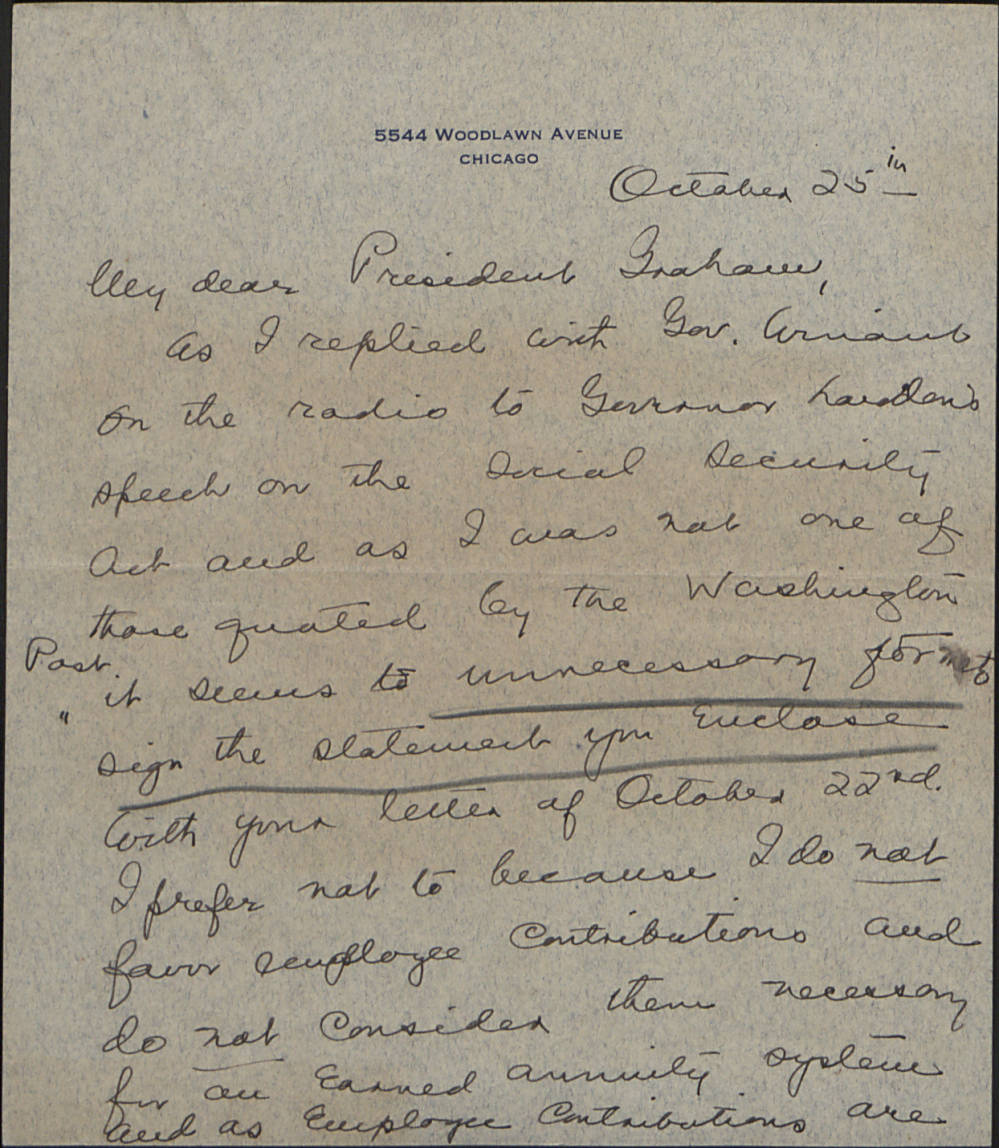 5544 WOODLAWN AVENUE
CHICAGO
October 25th
My dear President Graham,
As I replied with Gov. Winant
on the radio to Governor Landon's
speech on the Social Security
Act and as I was not one of
those quoted by the Washington
Post
" it seems to unnecessary for me to
sign the statement you enclose
with your letter of October 22nd.
I prefer not to because I do not
favor employee contributions and
do not consider them necessary
for an earned annuity system
and as Employee Contributions are